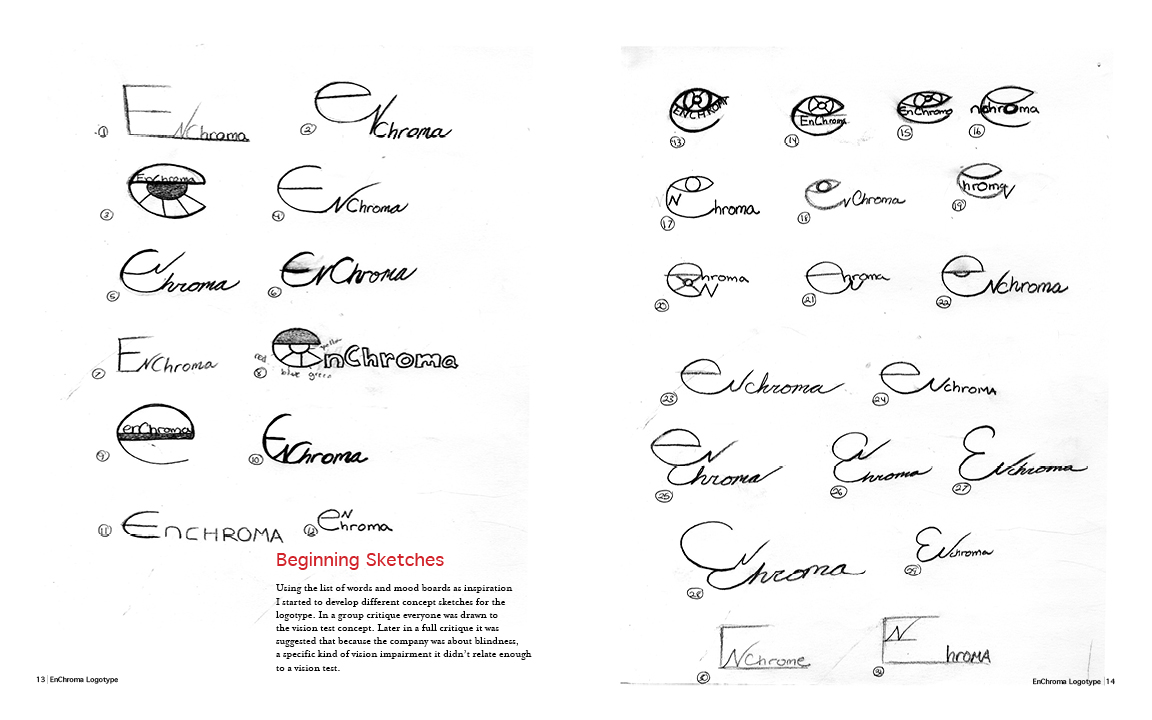 1 ENChroma
2 eNChroma
3 EnChroma
4 ENChroma
5 ENChroma
6 ENChroma
7 ENChroma
8 EnChroma
red
yellow
blue green
9 enChroma
10 ENChroma
11 EnCHROMA
12 eNChroma
Beginning Sketches
Using the list of words and mood boards as inspiration
I started to develop different concept sketches for the
logotype. In a group critique everyone was drawn to
the vision test concept. Later in a full critique it was
suggested that because the company was about blindness,
a specific kind of vision impairment it didn’t relate enough
to a vision test.
13 | EnChroma Logotype
13 ENCHROMA
14 EnChroma
15 EnChroma
16 nchroma
17 N hroma
18 eNChroma
19 hroma N
20 hroma N
21 hroma
22 eNchroma
23 eNchroma
24 eNchroMA
25 eNChroma
26 ENChroma
27 ENchroma
28 Chroma
29 ENchroma
30 ENChrome
31 EN hroMA
EnChroma Logotype | 14